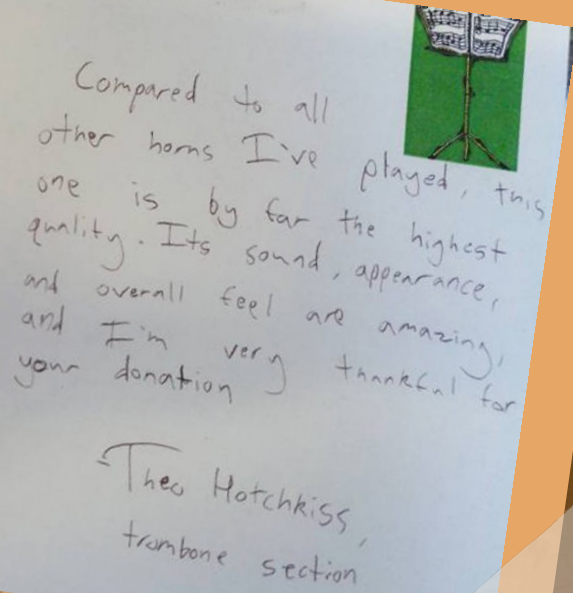 Compared to all
other horns I've played, this
one is by far the highest
quality. Its sound, appearance,
and overall feel are amazing,
and I'm very thankful for
your donation
-Theo Hotchkiss,
trombone section